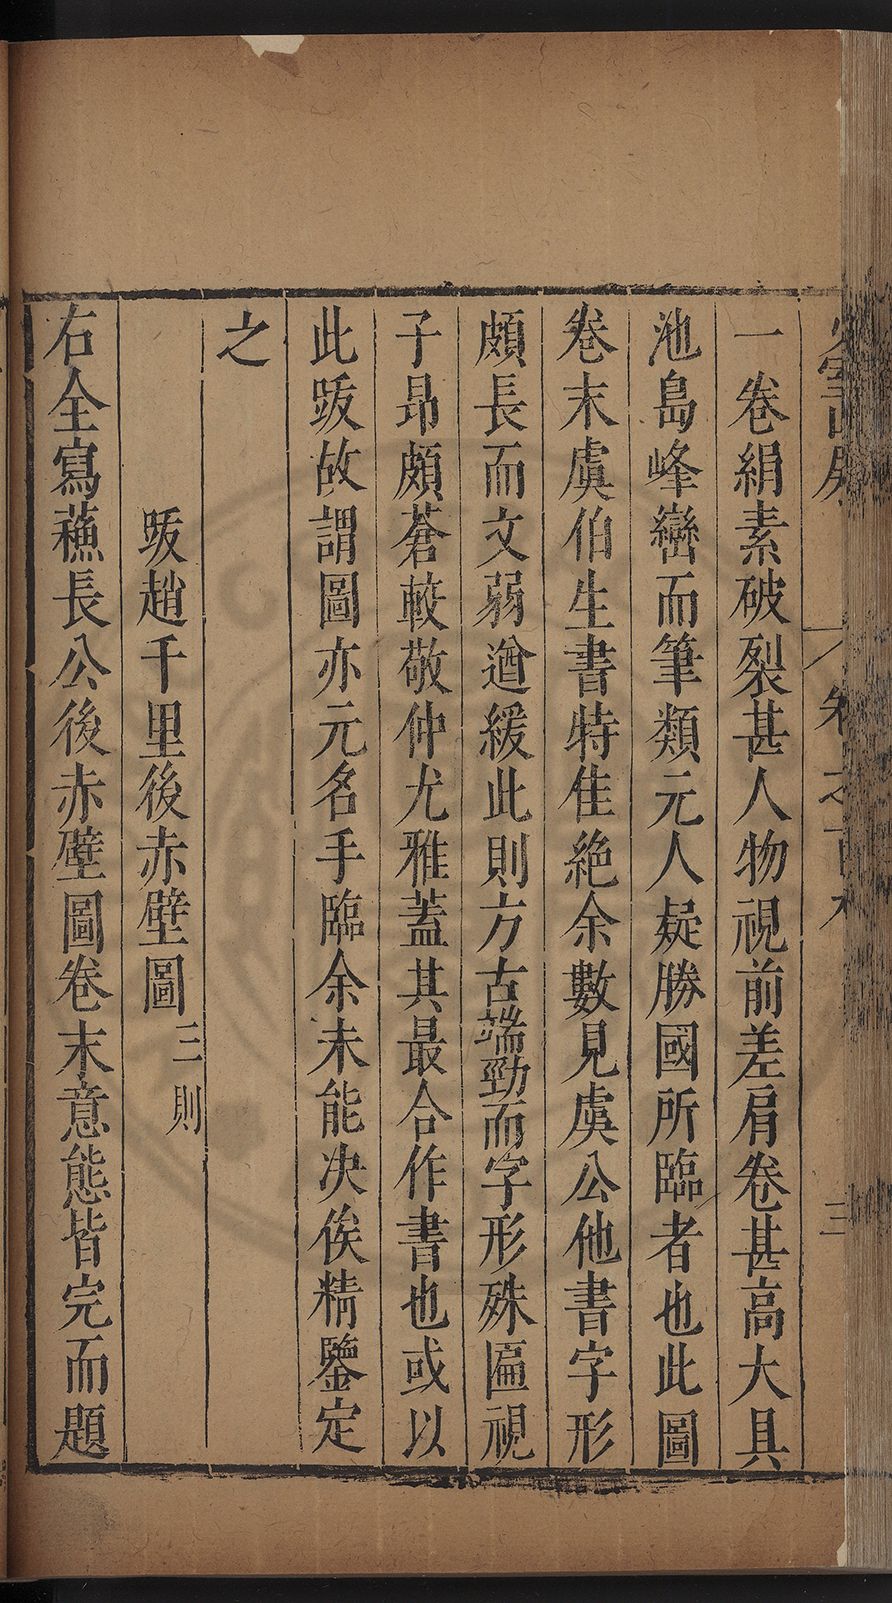 一卷絹素破裂甚人物視前差肩卷甚高大具
池島峰巒而筆類元人疑勝國所臨者也此圖
卷末虞伯生書特佳絶余數見虞公他書字形
頗長而文弱遒緩此則方古端勁而字形殊匾視
子昂頗蒼較敬仲尤雅蓋其最合作書也或以
此䟦故謂圖亦元名手臨余未能决俟精鑒定
之
䟦趙千里後赤壁圖三則
右全寫蘓長公後赤壁圖卷末意態皆完而題